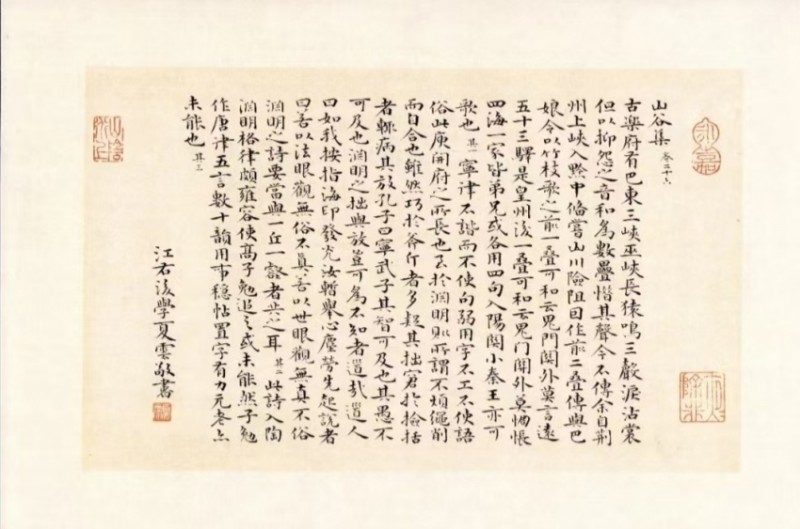 山谷集 卷二十六
古樂府有巴東三峽巫峽長猿鳴三聲淚沾裳
但以抑怨之音和為數疊惜其聲今不傳余自荊
州上峽入黔中備嘗山川險阻因作前二疊傳與巴
娘令以竹枝歌之前一疊可和云鬼門關外莫言遠
五十三驛是皇州後一疊可和云鬼門關外莫惆悵
四海一家皆弟兄或各用四句入陽關小秦王亦可
歌也 其一 寧律不諧而不使句弱用字不工不使語
俗此庾開府之所長也至於淵明則所謂不煩繩削
而自合也雖然巧於斧斤者多疑其拙窘於撿括
者輒病其放孔子曰寧武子其智可及也其愚不
可及也淵明之拙與放豈可為不知者道哉道人
曰如我按指海印發光汝暫舉心塵勞先起說者
曰若以法眼觀無俗不真若以世眼觀無真不俗
淵明之詩要當與一丘一壑者共之耳 其二 此詩入陶
淵明格律頗雍容使高子勉追之或未能然子勉
作唐律五言數十韻用事穩帖置字有力元老亦
未能也 其三
江右後學夏雲敬書